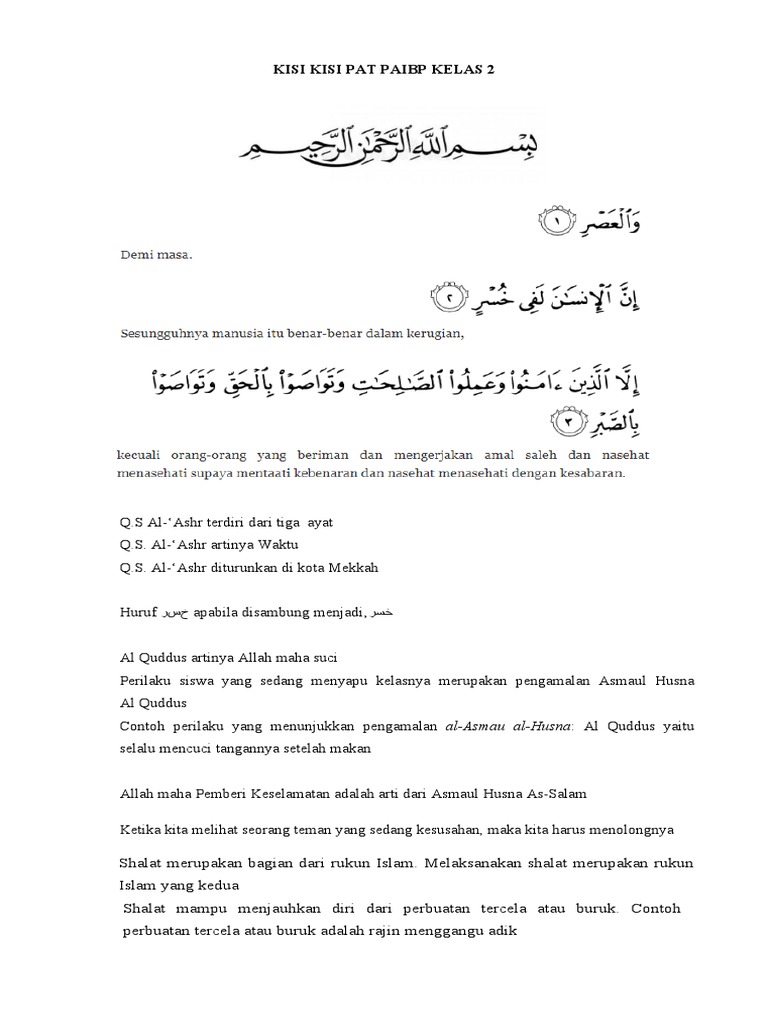 KISI KISI PAT PAIBP KELAS 2
بِسْمِ ٱللَّهِ ٱلرَّحْمَٰنِ ٱلرَّحِيمِ
وَٱلْعَصْرِ ١
Demi masa.
إِنَّ ٱلْإِنسَٰنَ لَفِى خُسْرٍ ٢
Sesungguhnya manusia itu benar-benar dalam kerugian,
إِلَّا ٱلَّذِينَ ءَامَنُوا۟ وَعَمِلُوا۟ ٱلصَّٰلِحَٰتِ وَتَوَاصَوْا۟ بِٱلْحَقِّ وَتَوَاصَوْا۟
بِٱلصَّبْرِ ٣
kecuali orang-orang yang beriman dan mengerjakan amal saleh dan nasehat
menasehati supaya mentaati kebenaran dan nasehat menasehati dengan kesabaran.
Q.S Al-‘Ashr terdiri dari tiga ayat
Q.S. Al-‘Ashr artinya Waktu
Q.S. Al-‘Ashr diturunkan di kota Mekkah
Huruf خ س ر apabila disambung menjadi, خسر
Al Quddus artinya Allah maha suci
Perilaku siswa yang sedang menyapu kelasnya merupakan pengamalan Asmaul Husna
Al Quddus
Contoh perilaku yang menunjukkan pengamalan al-Asmau al-Husna: Al Quddus yaitu
selalu mencuci tangannya setelah makan
Allah maha Pemberi Keselamatan adalah arti dari Asmaul Husna As-Salam
Ketika kita melihat seorang teman yang sedang kesusahan, maka kita harus menolongnya
Shalat merupakan bagian dari rukun Islam. Melaksanakan shalat merupakan rukun
Islam yang kedua
Shalat mampu menjauhkan diri dari perbuatan tercela atau buruk. Contoh
perbuatan tercela atau buruk adalah rajin menggangu adik